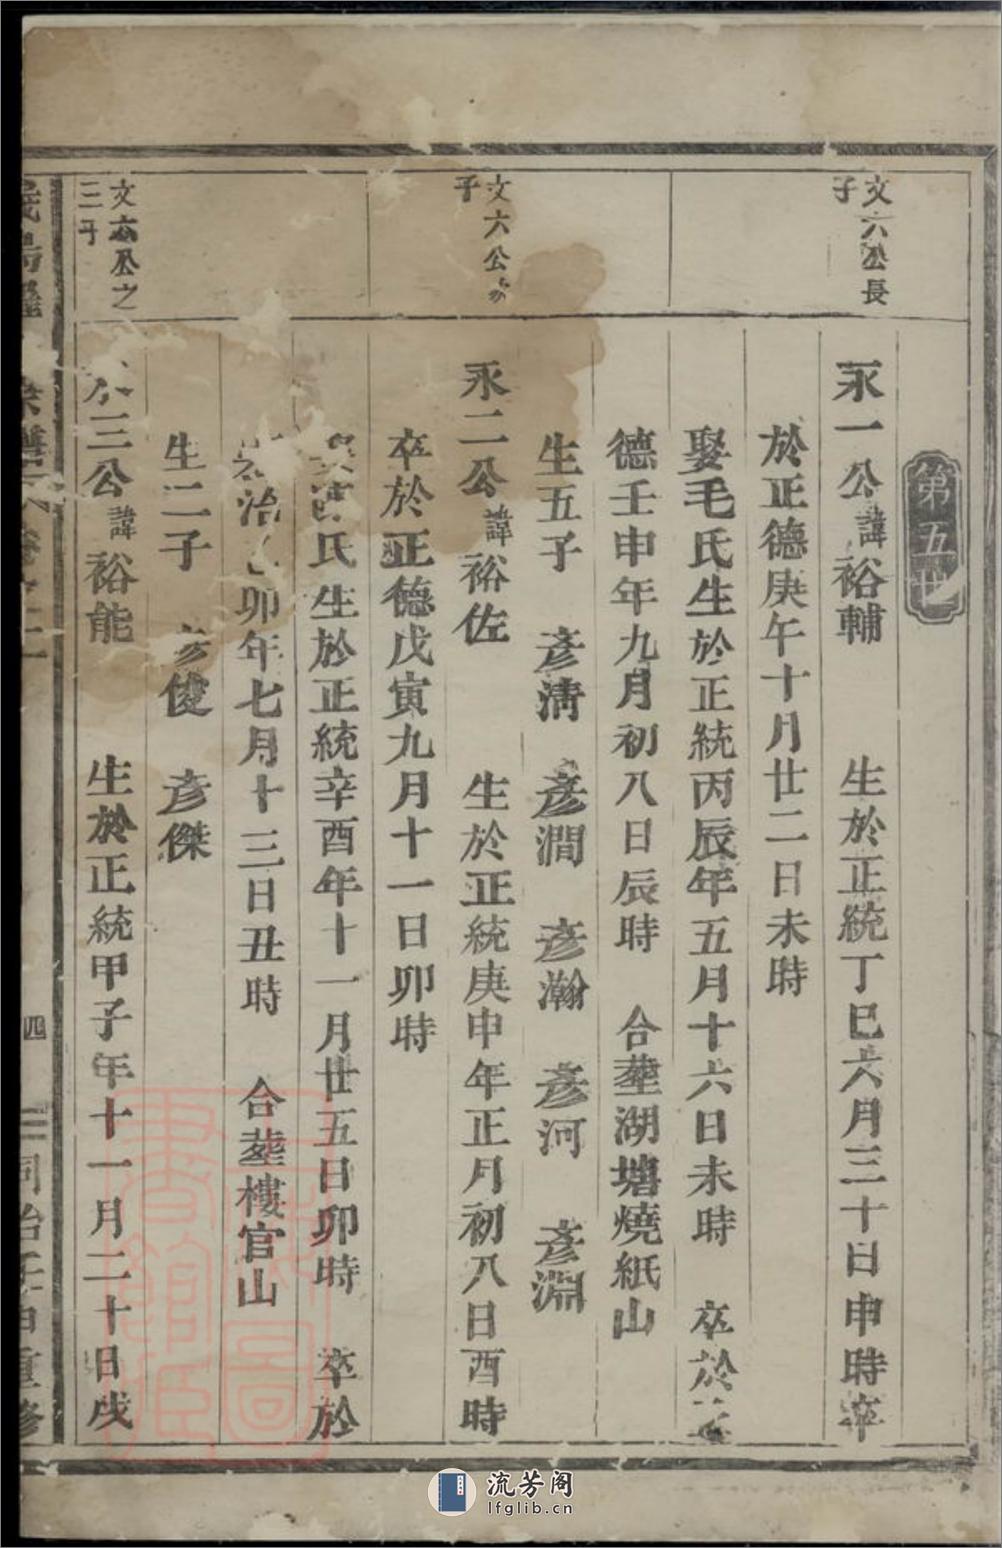 第五世
文六公長子
永一公諱裕輔 生於正統丁巳六月三十日申時卒
於正德庚午十月廿二日未時
娶毛氏生於正統丙辰年五月十六日未時 卒於正
德壬申年九月初八日辰時 合塟湖塘燒紙山
生五子 彥淸 彥澗 彥瀚 彥河 彥淵
文六公次子
永二公諱裕佐 生於正統庚申年正月初八日酉時
卒於正德戊寅九月十一日卯時
氏生於正統辛酉年十一月廿五日卯時 卒於
治卯年七月十三日丑時 合塟樓官山
生二子 彥俊 彥傑
文六公之三子
永三公諱裕能 生於正統甲子年十一月二十日戌
四
同治壬申重修
流芳阁
lfglib.cn